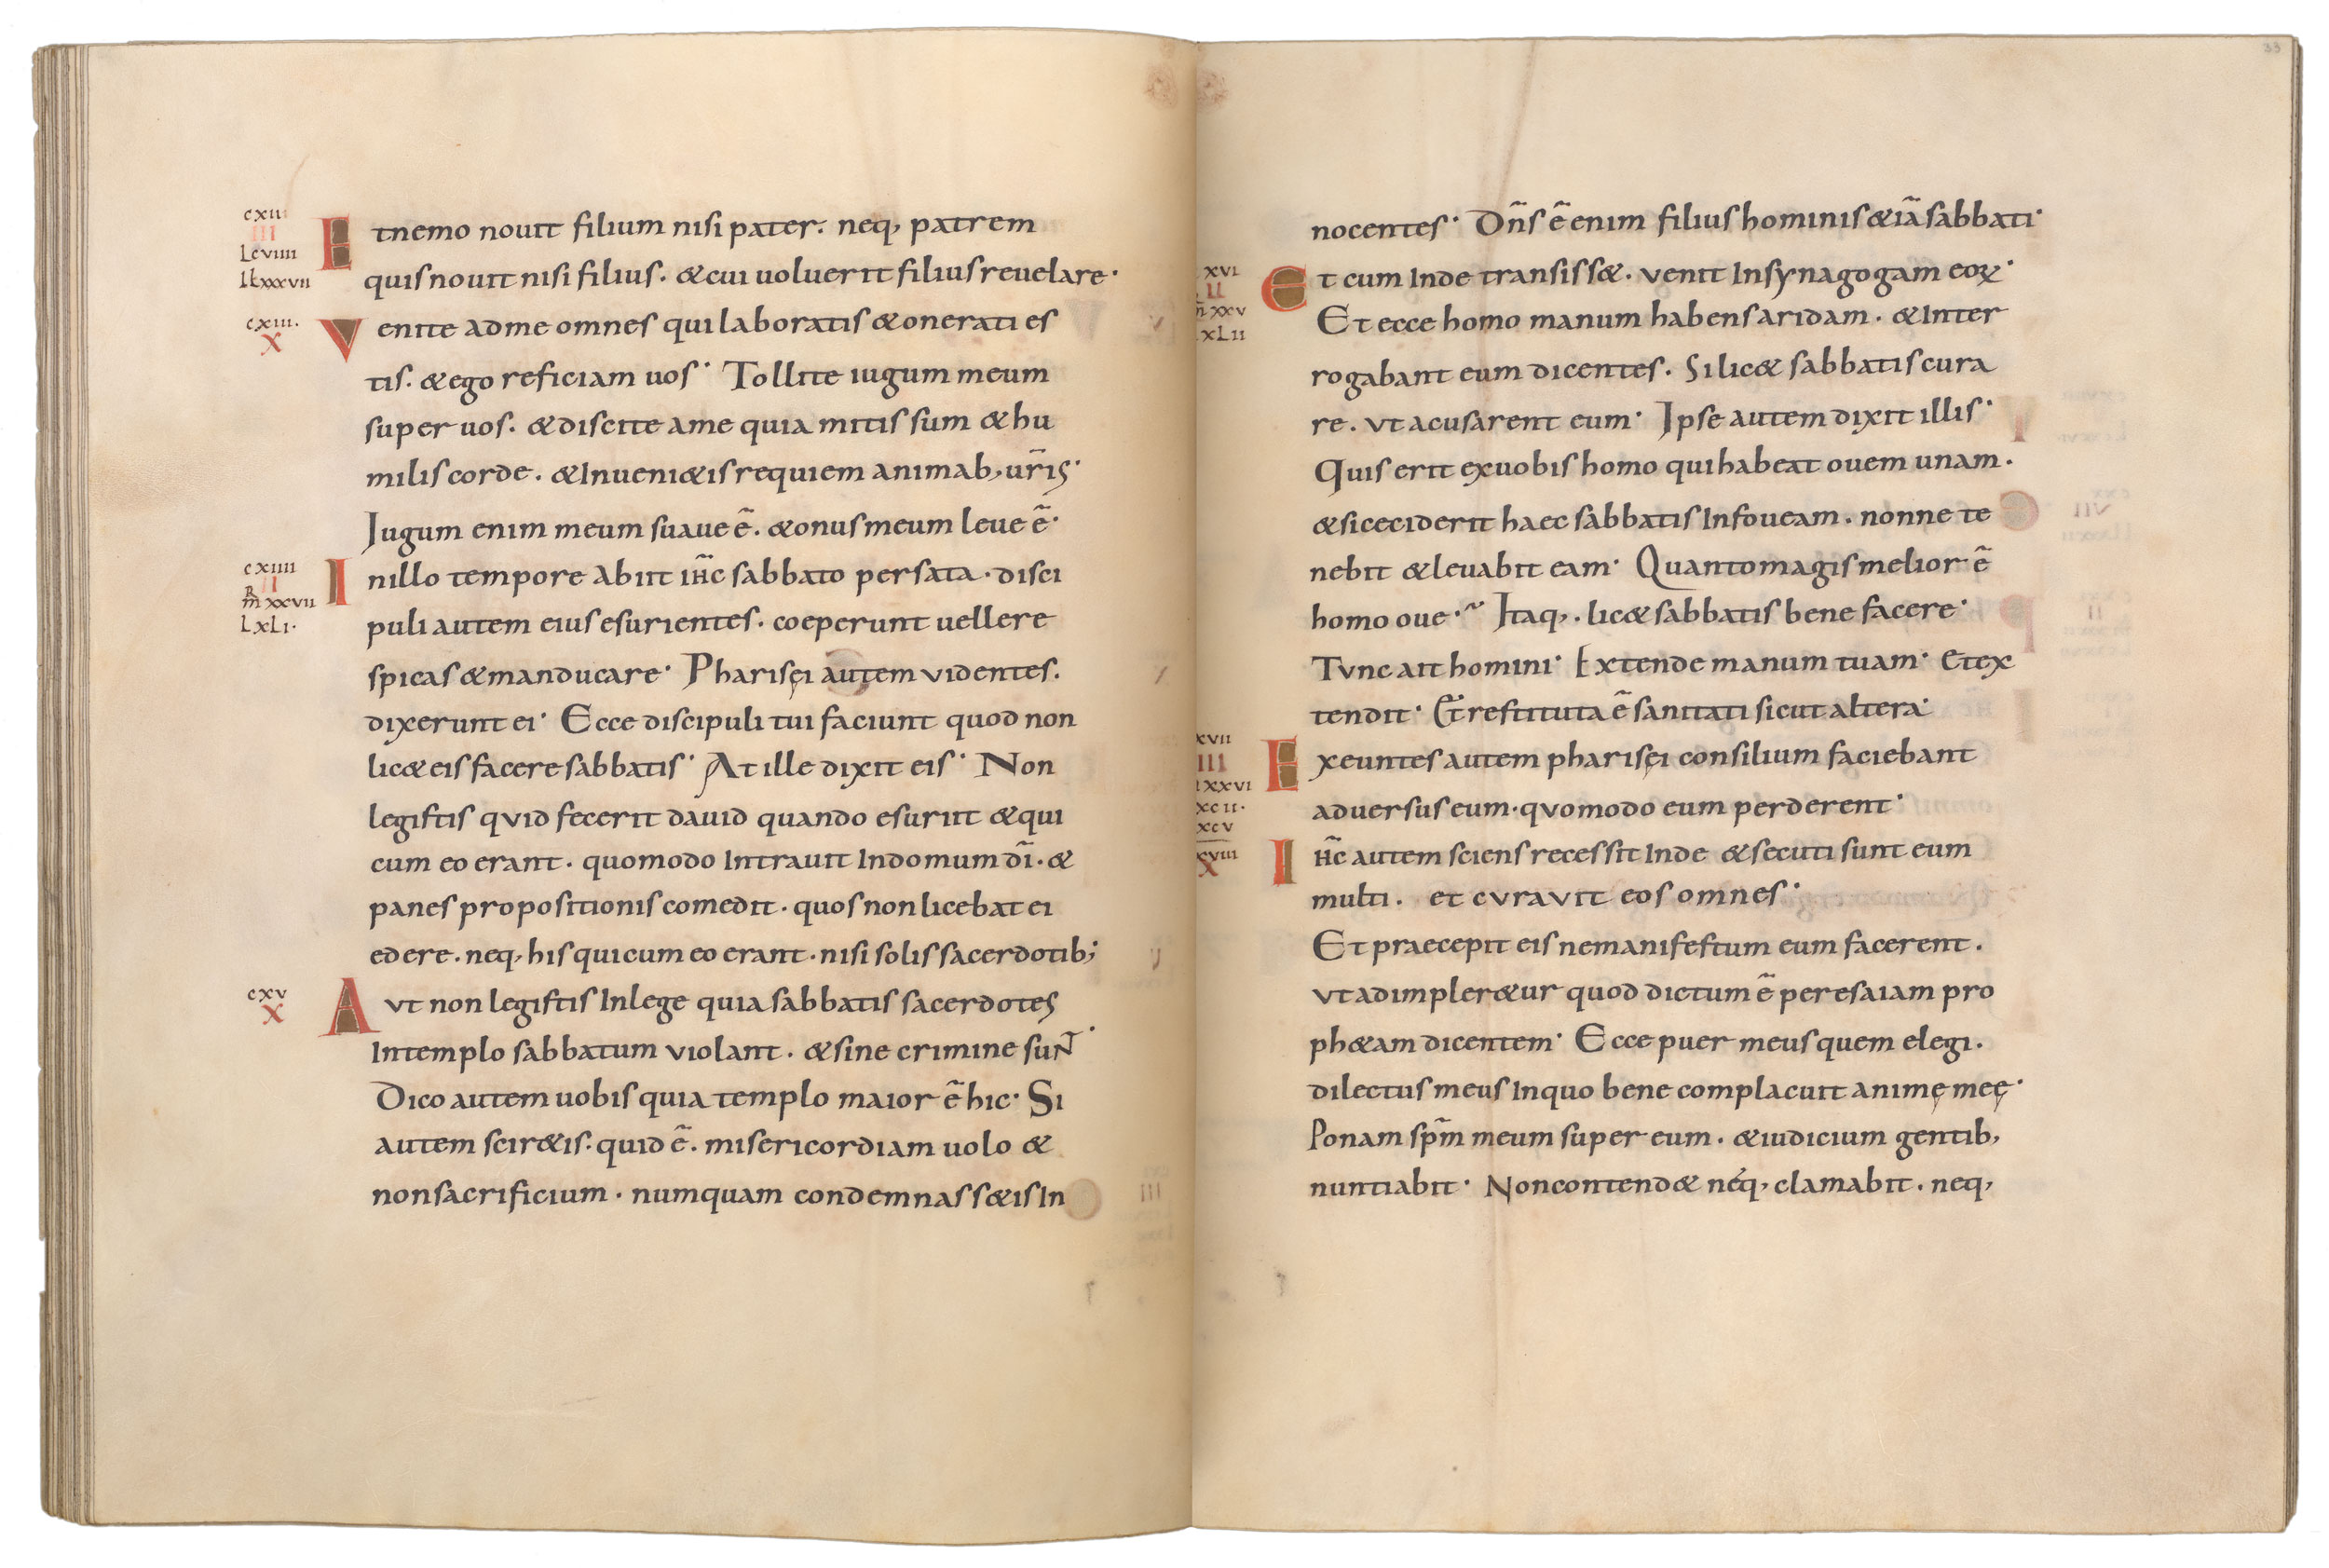 cxii
III
Lcviiii
Ltxxxvii
Et nemo nouit filium nisi pater. neq, patrem
quis nouit nisi filius. & cui uoluerit filius reuelare·
cxiii.
X
Venite adme omnes qui laboratis & onerati es
tis. & ego reficiam uos· Tollite iugum meum
super uos. & discite ame quia mitis sum & hu
milis corde. & Inueni&is requiem animab, ur̃is·
Jugum enim meum suaue ẽ. & onus meum leue ẽ·
cxiiii
II
m̃ xxvii
LxLi·
In illo tempore Abiit ih̃c sabbato per sata. disci
puli autem eius esurientes. coeperunt uellere
spicas & manducare· Pharisęi autem videntes.
dixerunt ei· Ecce discipuli tui faciunt quod non
lic& eis facere sabbatis· At ille dixit eis· Non
legistis qvid fecerit dauid quando esuriit & qui
cum eo erant. quomodo Intrauit Indomum dı̃. &
panes propositionis comedit. quos non licebat ei
edere. neq, his qui cum eo erant. nisi solis sacerdotib;
cxv
X
Avt non legistis Inlege quia sabbatis sacerdotes
Intemplo sabbatum violant. & sine crimine suÑ·
Dico autem uobis quia templo maior ẽ hic· Si
autem scir&is. quid ẽ. misericordiam uolo &
non sacrificium. numquam condemnass&is In
33
nocentes· Dñs ẽ enim filius hominis &iã sabbati·
xvi
II
xxv
xLii
Et cum Inde transiss&. venit Insynagogam eoꝝ·
Et ecce homo manum habens aridam. & Inter
rogabant eum dicentes. Si lic& sabbatis cura
re. vt acusarent eum· Ipse autem dixit illis·
Quis erit exuobis homo qui habeat ouem unam.
& si ceciderit haec sabbatis Infoueam. nonne te
nebit & leuabit eam· Quanto magis melior ẽ
homo oue·~ Itaq,. lic& sabbatis bene facere·
Tvnc ait homini· Extende manum tuam· Et ex
tendit· Et restituta ẽ sanitati sicut altera·
xvii
III
xxvi
xcii.
xcv
Exeuntes autem pharisęi consilium faciebant
aduersus eum. qvomodo eum perderent·
xviii
X
Ih̃c autem sciens recessit Inde & secuti sunt eum
multi. et cvravit eos omnes·
Et praecepit eis ne manifestum eum facerent.
vt adimpler&ur quod dictum ẽ per esaiam pro
ph&am dicentem· Ecce puer meus quem elegi.
dilectus meus Inquo bene complacuit animę meę·
Ponam sp̃m meum super eum. & iudicium gentib,
nuntiabit· Non contend& neq, clamabit. neq,